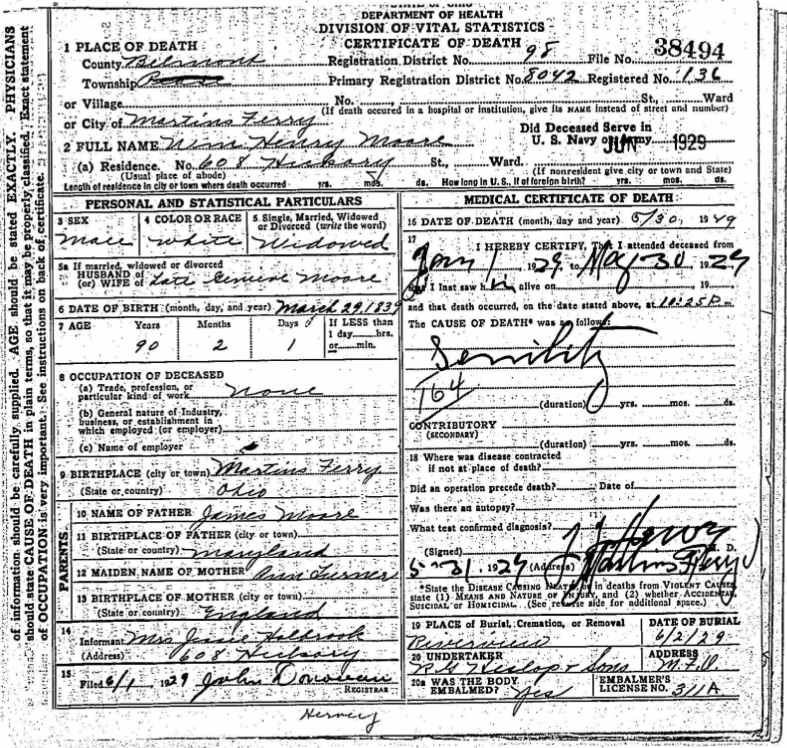 STATE OF OHIO
DEPARTMENT OF HEALTH
DIVISION OF VITAL STATISTICS
CERTIFICATE OF DEATH
1 PLACE OF DEATH
County Belmont Registration District No. 98 File No. 38494
Township Primary Registration District No. 8042 Registered No. 136
or Village No. St., Ward
(If death occured in a hospital or institution, give its NAME instead of street and number)
or City of Martins Ferry
Did Deceased Serve in
U. S. Navy or Army
JUN 1929
2 FULL NAME Wm Henry Moore
(a) Residence. No. 608 Hickory St., Ward.
(Usual place of abode) (If nonresident give city or town and State)
Length of residence in city or town where death occurred yrs. mos. ds. How long in U.S., if of foreign birth? yrs. mos. ds.
PERSONAL AND STATISTICAL PARTICULARS
3 SEX 4 COLOR OR RACE 5 Single, Married, Widowed
or Divorced (write the word)
Male White Widowed
5a If married, widowed or divorced
HUSBAND of
(or) WIFE of Late Moore
6 DATE OF BIRTH (month, day, and year) March 29, 1839
7 AGE Years Months Days If LESS than
1 day hrs.
or min.
90 2 1
8 OCCUPATION OF DECEASED
(a) Trade, profession, or
particular kind of work none
(b) General nature of Industry,
business, or establishment in
which employed (or employer)
(c) Name of employer
9 BIRTHPLACE (city or town) Martins Ferry
(State or country) Ohio
PARENTS
10 NAME OF FATHER James Moore
11 BIRTHPLACE OF FATHER (city or town)
(State or country) Maryland
12 MAIDEN NAME OF MOTHER Ann Turner
13 BIRTHPLACE OF MOTHER (city or town)
(State or country) England
14
Informant Mrs Jessie Holbrook
(Address) 608 Hickory
15
Filed 6/1 1929 John Donovan
REGISTRAR
MEDICAL CERTIFICATE OF DEATH
16 DATE OF DEATH (month, day and year) 5/30, 1929
17
I HEREBY CERTIFY, That I attended deceased from
Jan 1, 1929, to May 30, 1929
that I last saw him alive on , 19
and that death occurred, on the date stated above, at 10:25 P m.
The CAUSE OF DEATH* was as follows:
Senility
164
(duration) yrs. mos. ds.
CONTRIBUTORY
(SECONDARY)
(duration) yrs. mos. ds.
18 Where was disease contracted
if not at place of death?
Did an operation precede death? Date of
Was there an autopsy?
What test confirmed diagnosis?
(Signed) M. D.
5-31, 1929 (Address) Martins Ferry
*State the DISEASE CAUSING DEATH, or in deaths from VIOLENT CAUSES,
state (1) MEANS AND NATURE OF INJURY, and (2) whether ACCIDENTAL,
SUICIDAL or HOMICIDAL. (See reverse side for additional space.)
19 PLACE of Burial, Cremation, or Removal DATE OF BURIAL
Riverview 6/2/29
20 UNDERTAKER ADDRESS
Heslop & Sons M. F. O.
20a WAS THE BODY
EMBALMED? Yes
EMBALMER'S
LICENSE NO. 311A
Hervey
of information should be carefully supplied. AGE should be stated EXACTLY. PHYSICIANS
should state CAUSE OF DEATH in plain terms, so that it may be properly classified. Exact statement
of OCCUPATION is very important. See instructions on back of certificate.